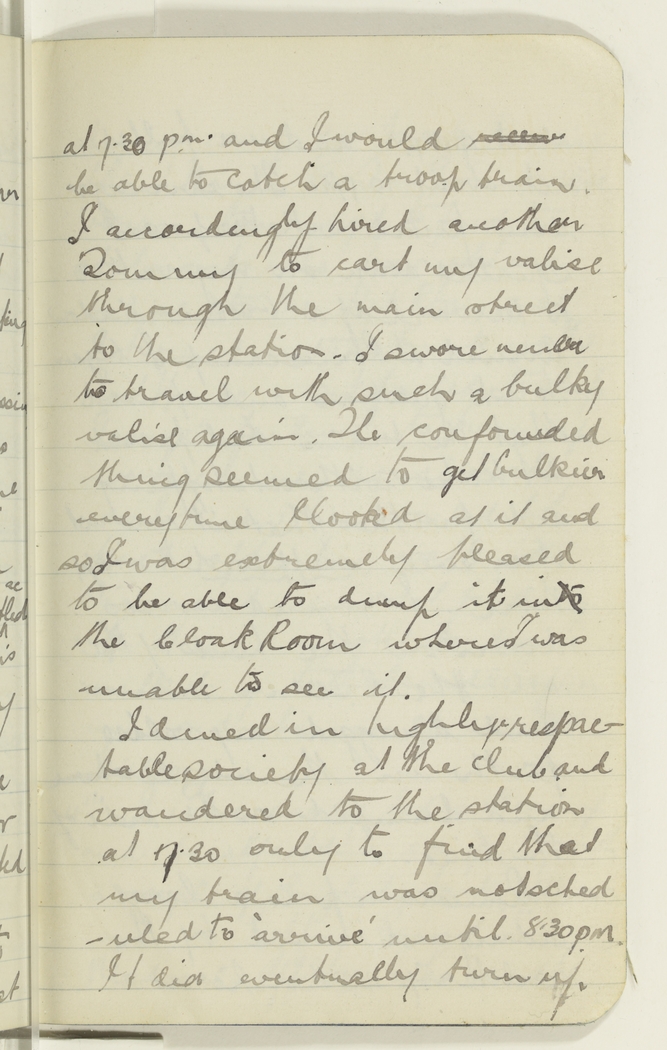 at 7.30 p.m. and I would
be able to catch a troop train.
I accordingly hired another
Tommy to cart my valise
through the main street
to the station. I swore never
to travel with such a bulky
valise again. The confounded
thing seemed to get bulkier
everytime I looked at it and
so I was extremely pleased
to be able to dump it into
the Cloak Room where I was
unable to see it.
I dined in highly respec-
table society at the club and
wandered to the station
at 7.30 only to find that
my train was not sched
-uled to 'arrive' until 8.30 p.m.
It did eventually turn up.